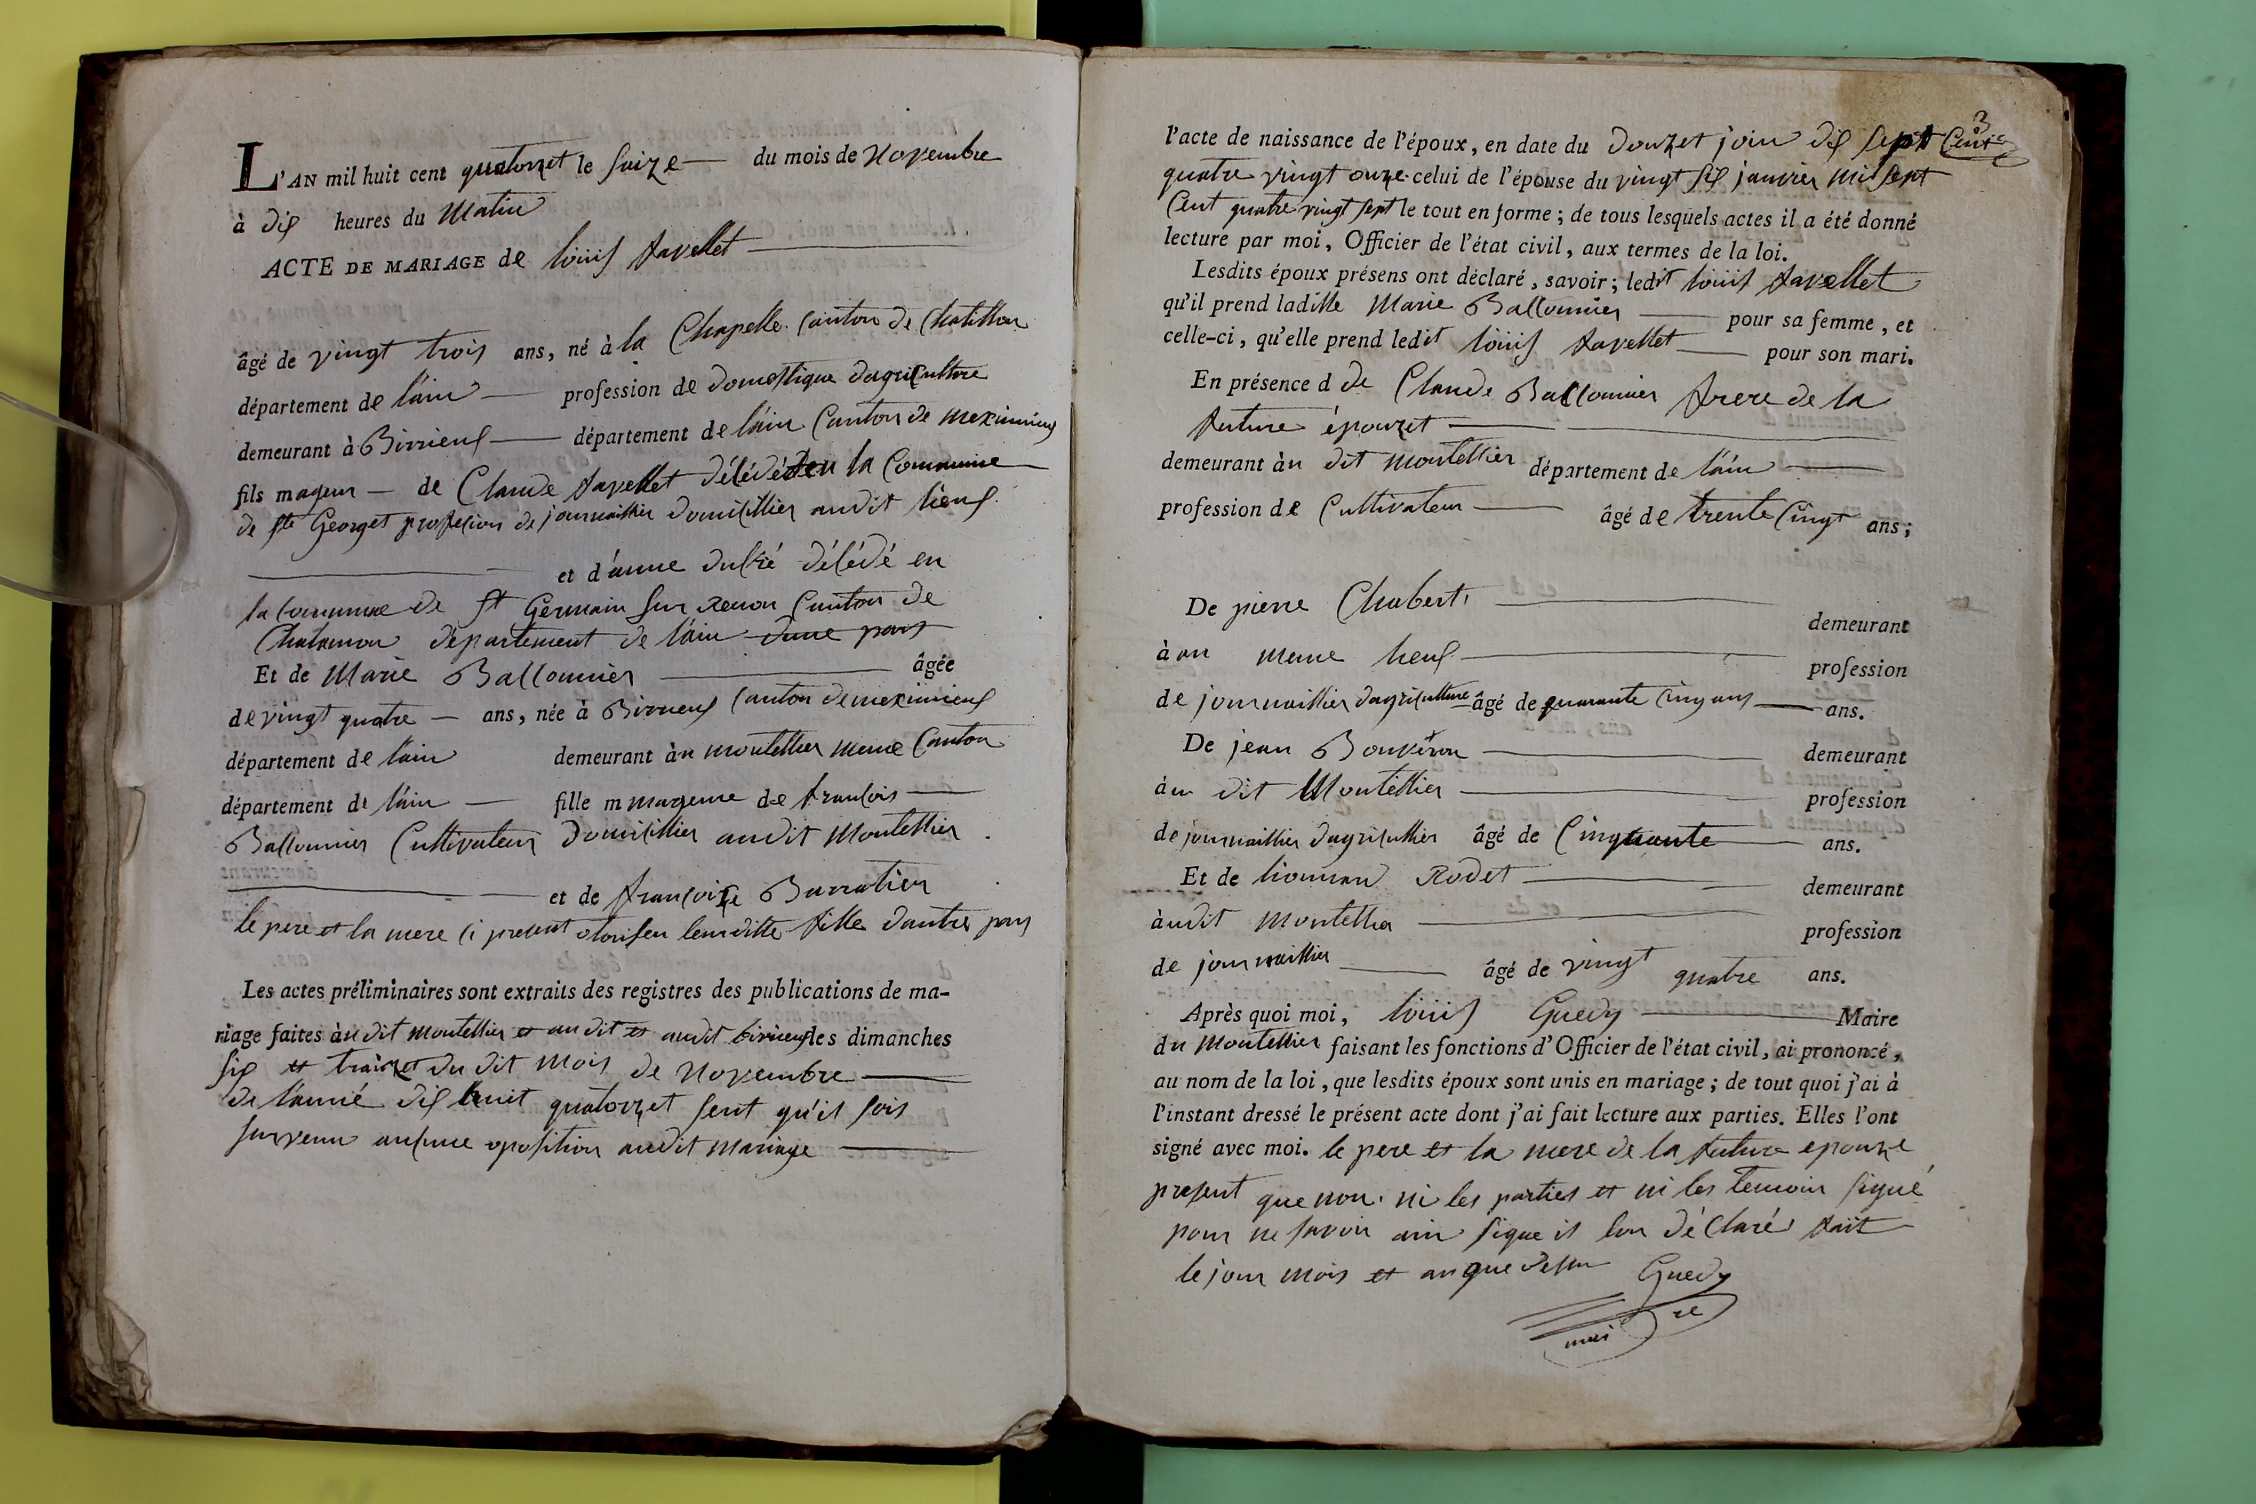 L'AN mil huit cent quatorzet le saize du mois de Novembre
à dis heures du Matin
ACTE DE MARIAGE de loüis favellet
âgé de vingt trois ans, né à la Chapelle Canton de Chatillon
département de láin profession de domestique dagriculture
demeurant à Birrieus département de láin Canton de meximieus
fils mageur de Claude favellet délédé en la Commune
de ste Georget profesion de journaillier domicillier audit lieus
et d'anne dubré délédé en
la Commune de st Germain sur renon Canton de
Chalamon département de láin dune pars
Et de Marie Ballonnier âgée
de vingt quatre ans, née à Birrieus Canton de meximieus
département de láin demeurant àu montellier meme Canton
département de láin fille m mageure de francois
Ballonnier Cultivateur domicillier audit Montellier
et de francoise Barratier
le pere et la mere ci present leurditte fille dautre pars
Les actes préliminaires sont extraits des registres des publications de ma-
riage faites àudit montellier et au dit et audit birrieus les dimanches
sis et traizet dudit mois de Novembre
de lánné dis huit quatorzet sent qu'il sois
survenu aucune oposition audit mariage
3
l'acte de naissance de l'époux, en date du douzet join dis sept Cent
quatre vingt onze celui de l'épouse du vingt sis janvier mil sept
Cent quatre vingt sept le tout en forme ; de tous lesquels actes il a été donné
lecture par moi, Officier de l'état civil, aux termes de la loi.
Lesdits époux présens ont déclaré, savoir ; ledit loüis favellet
qu'il prend laditte Marie Ballonnier pour sa femme, et
celle-ci, qu'elle prend ledit loüis favellet pour son mari.
En présence d de Claude Ballonnier frere de la
future épouzet
demeurant àu dit montellier département de láin
profession de Cultivateur âgé de trente Cinqt ans ;
De pierre Chabert demeurant
à au meme lieus profession
de journaillier dagriculture âgé de quarante Cinq ans ans.
De jean demeurant
àu dit Montellier profession
de journaillier dagricultier âgé de Cinquante ans.
Et de Rodet demeurant
àudit montellier profession
de journaillier âgé de vingt quatre ans.
Après quoi moi, loüis Guedy Maire
du Montellier faisant les fonctions d'Officier de l'état civil, ai prononcé,
au nom de la loi, que lesdits époux sont unis en mariage ; de tout quoi j'ai à
l'instant dressé le présent acte dont j'ai fait lecture aux parties. Elles l'ont
signé avec moi. le pere et la mere de la future epouze
present que non. ni les parties et ni les temoin signé
pour ne savoir ain sique il lon déClaré fait
le jour mois et an que desu Guedy
maire